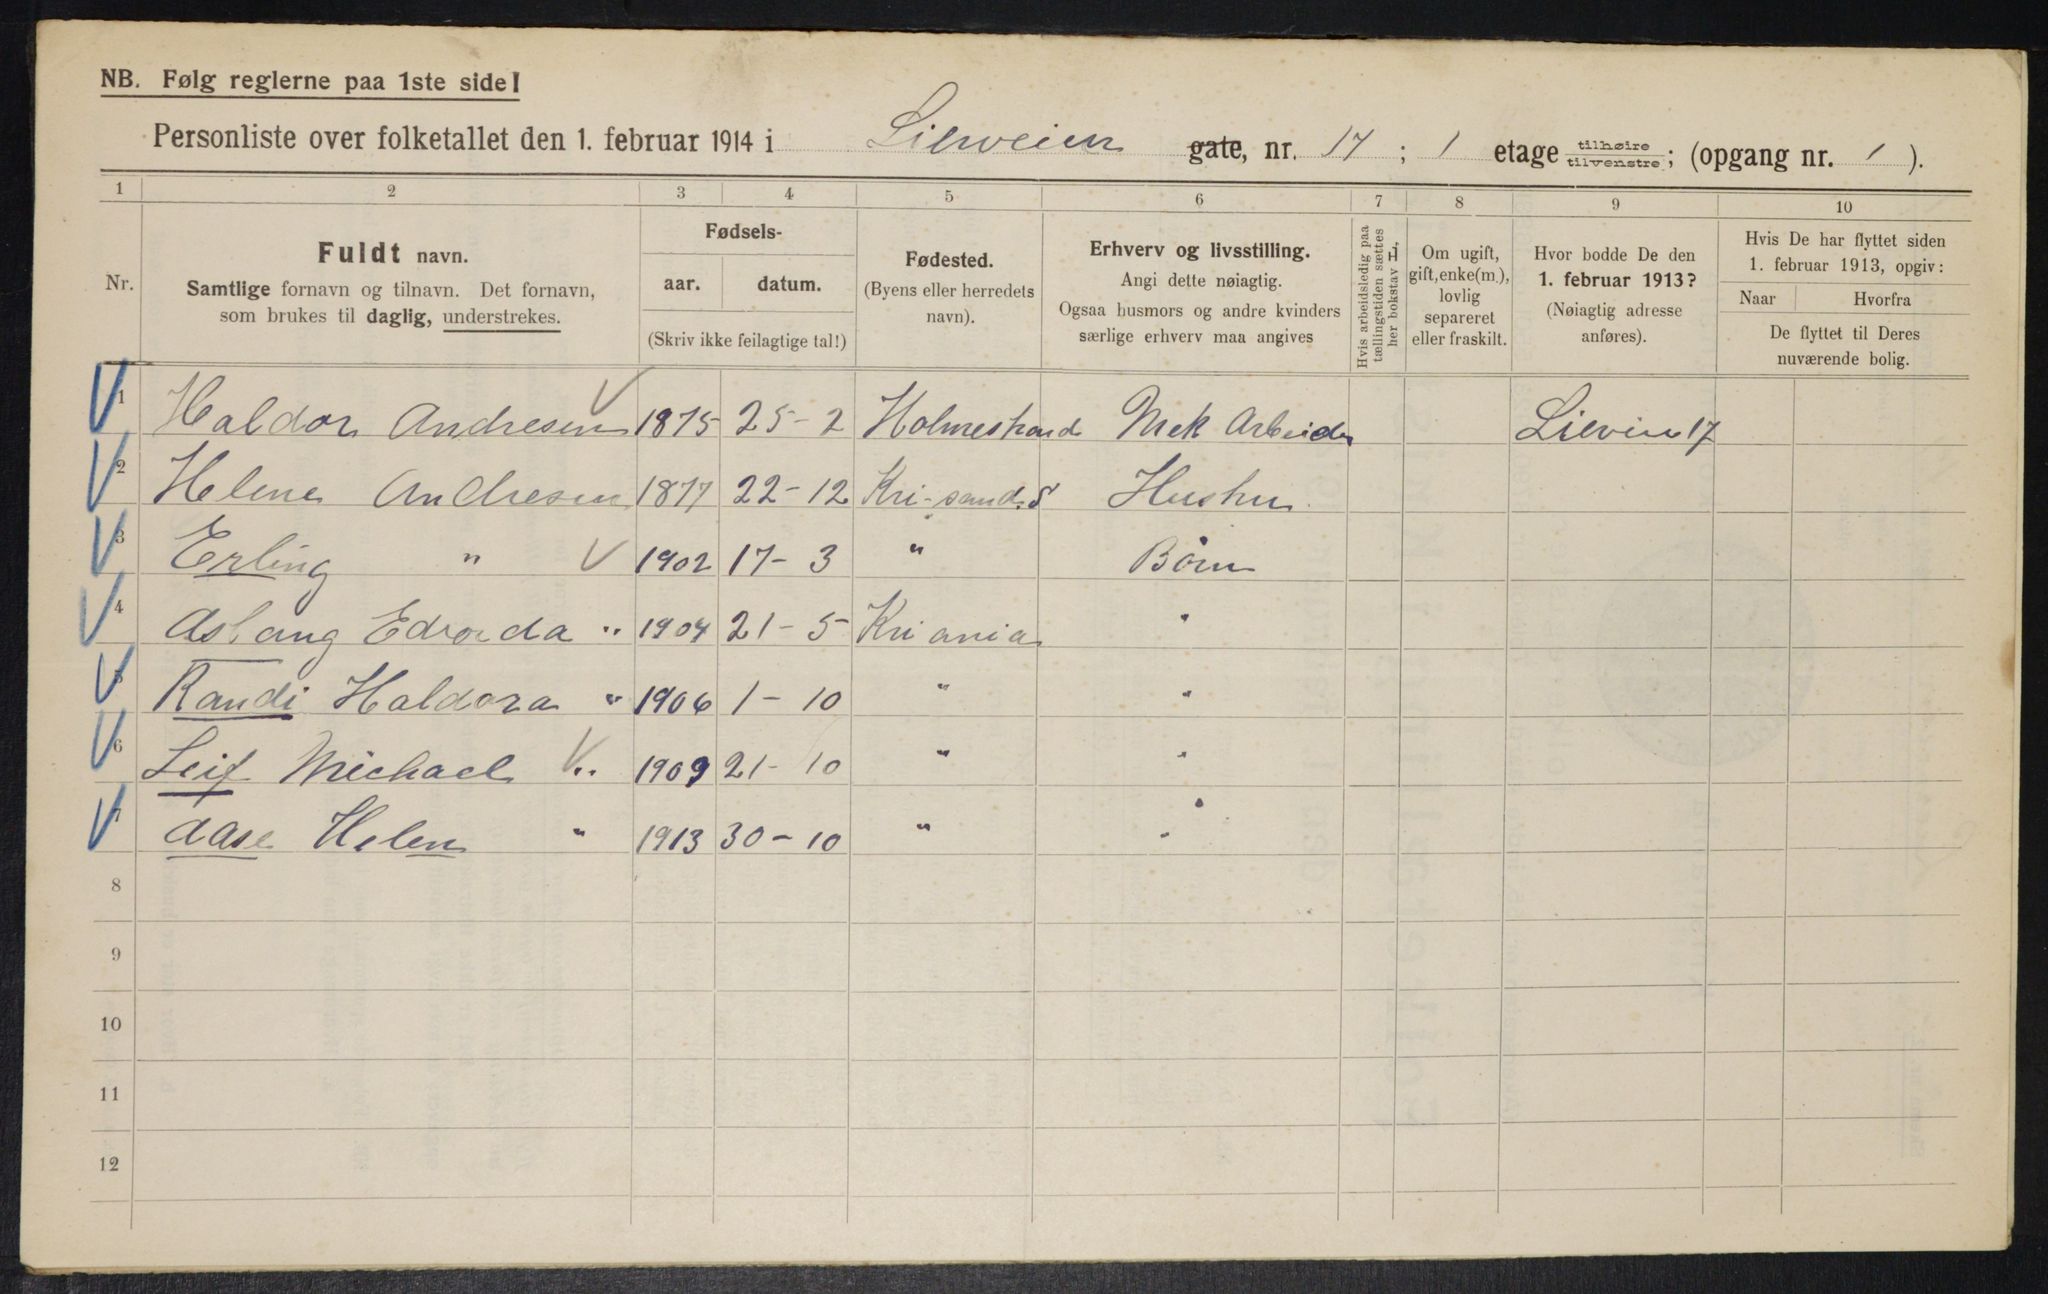 NB. Følg reglerne paa 1ste side!
Personliste over folketallet den 1. februar 1914 i Lierveien gate, nr. 17 ; 1 etage tilhøire tilvenstre ; (opgang nr. 1 ).
1 2 3 4 5 6 7 8 9 10
Nr.
Fuldt navn.
Samtlige fornavn og tilnavn. Det fornavn,
som brukes til daglig, understrekes.
Fødsels-
aar. datum.
(Skriv ikke feilagtige tal!)
Fødested.
(Byens eller herredets
navn).
Erhverv og livsstilling.
Angi dette nøiagtig.
Ogsaa husmors og andre kvinders
særlige erhverv maa angives
Hvis arbeidsledig paa
tællingstiden sættes
her bokstav L.
Om ugift,
gift, enke(m.),
lovlig
separeret
eller fraskilt.
Hvor bodde De den
1. februar 1913?
(Nøiagtig adresse
anføres).
Hvis De har flyttet siden
1. februar 1913, opgiv:
Naar Hvorfra
De flyttet til Deres
nuværende bolig.
1 Haldor Andresen 1875 25-2 Holmestrand Mek Arbeider Lierveien 17
2 Helene Andresen 1877 22-12 Kri-sand. S Hushu
3 Erling " 1902 17-3 " Børn
4 Aslaug Edvarda " 1904 21-5 Kriania "
5 Randi Haldora " 1906 1-10 " "
6 Leif Michael " 1909 21-10 " "
7 Aase Helen " 1913 30-10 " "
8
9
10
11
12